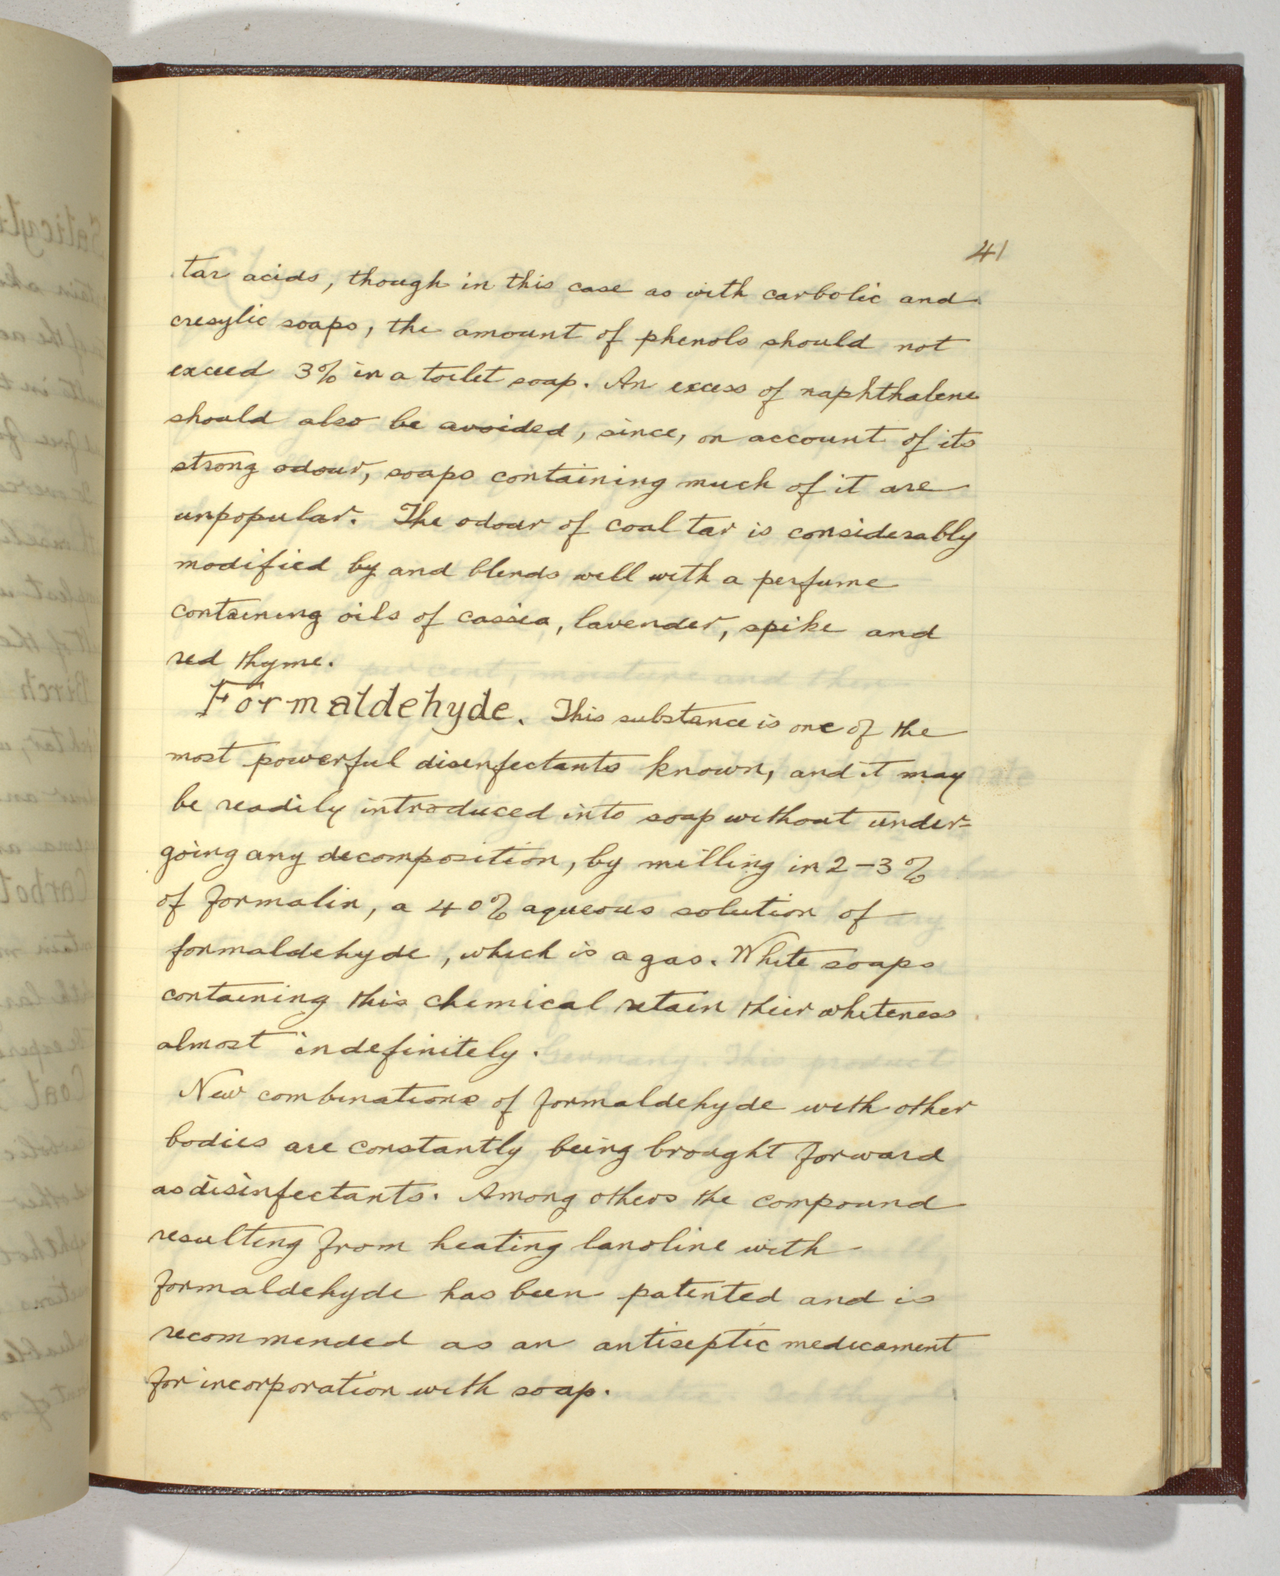 41
tar acids, though in this case as with carbolic and
cresylic soaps, the amount of phenols should not
exceed 3% in a toilet soap. An excess of naphthalene
should also be avoided, since, on account of its
strong odour, soaps containing much of it are
unpopular. The odour of coal tar is considerably
modified by and blends well with a perfume
containing oils of cassia, lavender, spike and
red thyme.
Formaldehyde. This substance is one of the
most powerful disinfectants known, and it may
be readily introduced into soap without under=
going any decomposition, by milling in 2-3%
of formalin, a 40% aqueous solution of
formaldehyde, which is a gas. White soaps
containing this chemical retain their whiteness
almost indefinitely.
New combinations of formaldehyde with other
bodies are constantly being brought forward
as disinfectants. Among others the compound
resulting from heating lanoline with
formaldehyde has been patented and is
recommended as an antiseptic medicament
for incorporation with soap.